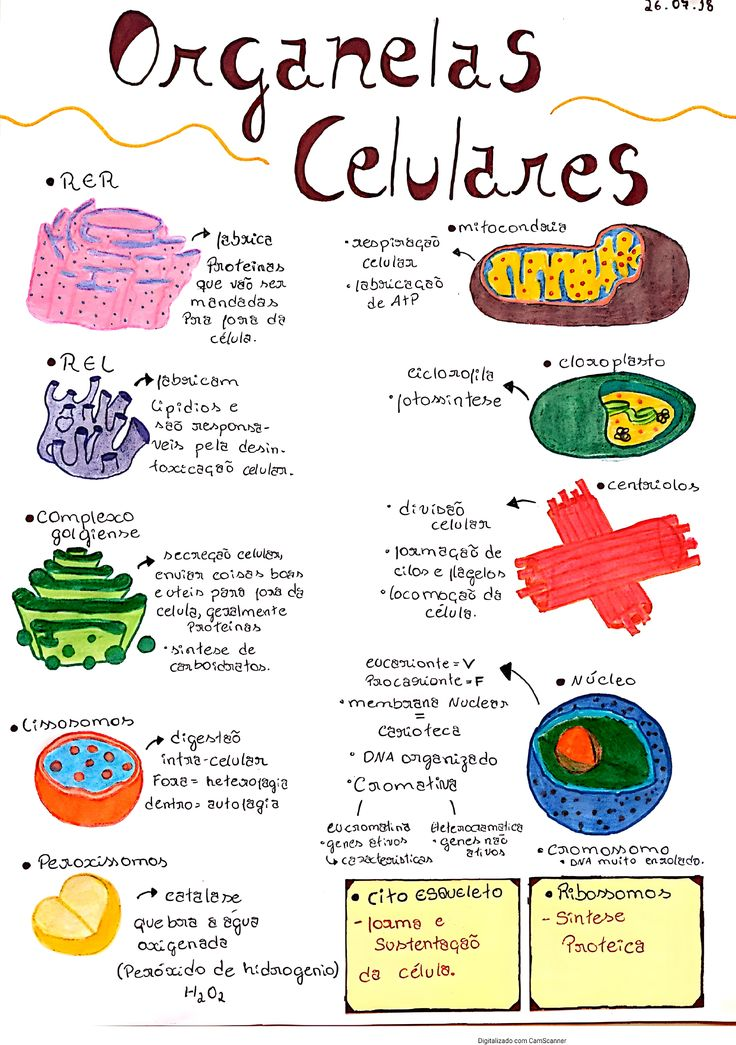 26.07.18
Organelas
Celulares
• RER
fabrica
Proteínas
que vão ser
mandadas
Para fora da
célula.
• REL
fabricam
Lipídios e
são responsá-
veis pela desin-
toxicação celular.
• Complexo
golgiense
secreção celular,
enviar coisas boas
e uteis para fora da
celula, geralmente
Proteinas
• síntese de
carboidratos.
• Lissosomos
digestão
intra-celular
Fora = heterofagia
dentro = autofagia
• Peroxissomos
catalase
quebra a água
oxigenada
(Peróxido de hidrogenio)
H2O2
• mitocondria
• respiração
celular
• fabricação
de ATP
• cloroplasto
• clorofila
• fotossintese
• centriolos
• divisão
celular
• formação de
cilos e flagelos
• locomoção da
célula.
• Núcleo
eucarionte = V
Procarionte = F
• membrana Nuclear
=
carioteca
• DNA organizado
• Cromativa
eucromatina
• genes ativos
características
Heterocramatica
• genes não
ativos
• Cromossomo
• DNA muito enrolado.
• Cito ESQUELETO
- forma e
Sustentação
da célula.
• Ribossomos
- Síntese
Proteica
Digitalizado com CamScanner